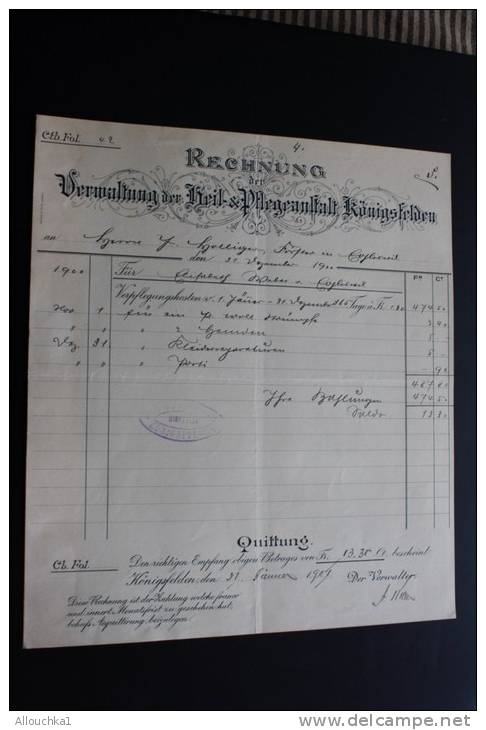 Ctb. Fol. 42
4.
RECHNUNG
der
Verwaltung der Heil- & Pflegeanstalt Königsfelden
an Herrn Förster in
den 31. Dezember 1900
1900 Für Weber v. Fr. Ct.
Verpflegungskosten v. 1. Jänner - 31. Dezember 365 Tage à Fr. 1.30 474 50
Nov. 1 für ein p. woll. Strümpfe 3 40
" " 2 Hemden 5 -
Dez. 31 " Kleiderreparaturen 5 -
" " " Porti - 90
Ihre Zahlungen 474 50
Saldo 13 30
Quittung.
Cb. Fol. Den richtigen Empfang obigen Betrages von Fr. 13.30 Ct. bescheint
Königsfelden, den 31. Jänner Der Verwalter:
Diese Rechnung ist der Zahlung welche franco
und innert Monatsfrist zu geschehen hat,
behufs Acquittirung beizulegen.
Allouchka1
http://www.delcampe.net